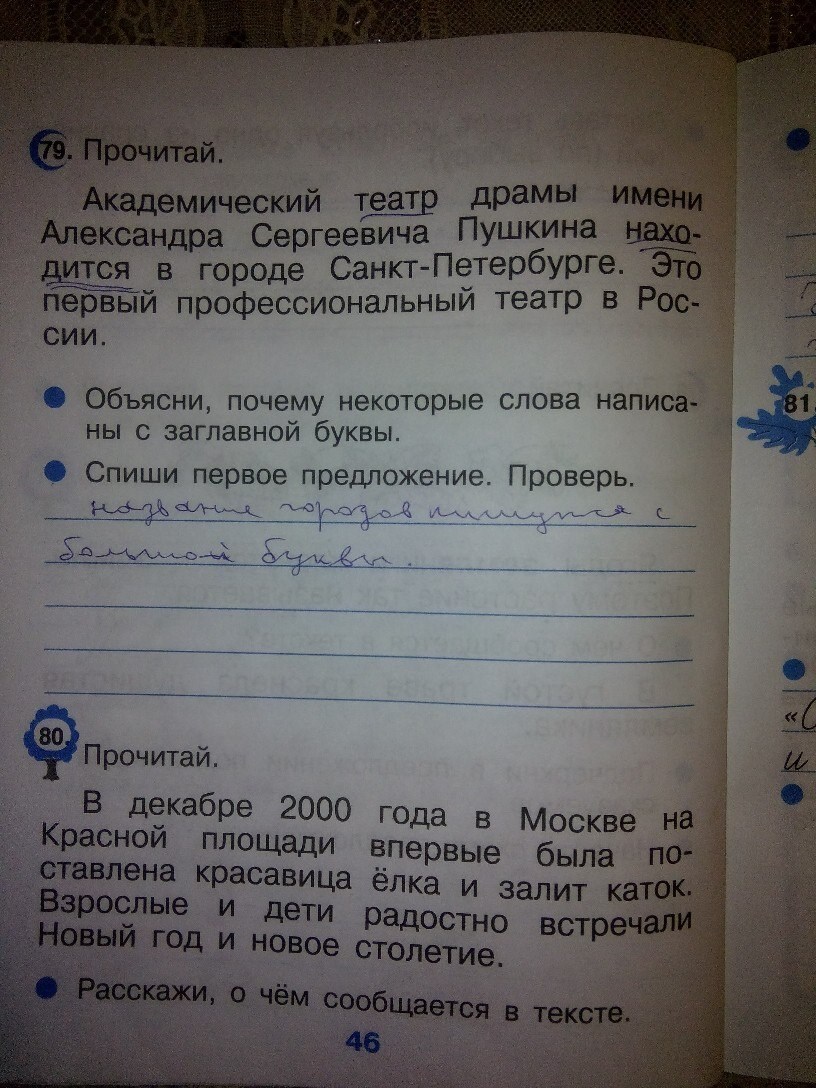 79. Прочитай.
Академический театр драмы имени
Александра Сергеевича Пушкина нахо-
дится в городе Санкт-Петербурге. Это
первый профессиональный театр в Рос-
сии.
Объясни, почему некоторые слова написа-
ны с заглавной буквы.
Спиши первое предложение. Проверь.
название городов пишутся с
большой буквы.
80. Прочитай.
В декабре 2000 года в Москве на
Красной площади впервые была по-
ставлена красавица ёлка и залит каток.
Взрослые и дети радостно встречали
Новый год и новое столетие.
Расскажи, о чём сообщается в тексте.
46
81.
и